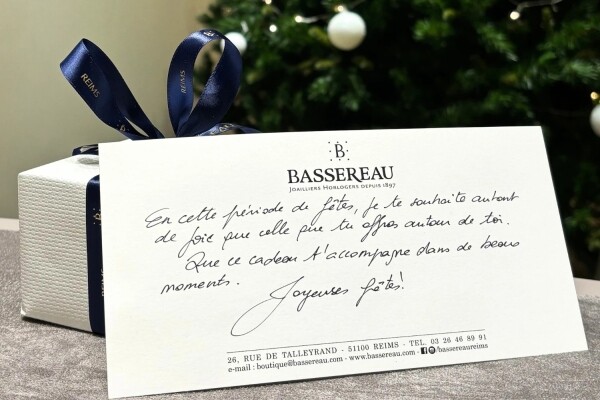 REIMS
REIMS
B
BASSEREAU
JOAILLIERS HORLOGERS DEPUIS 1897
En cette période de fêtes, je te souhaite autant
de joie que celle que tu offres autour de toi.
Que ce cadeau t'accompagne dans de beaux
moments.
Joyeuses fêtes!
26, RUE DE TALLEYRAND - 51100 REIMS - TEL. 03 26 46 89 91
e-mail : boutique@bassereau.com - www.bassereau.com - /bassereaureims